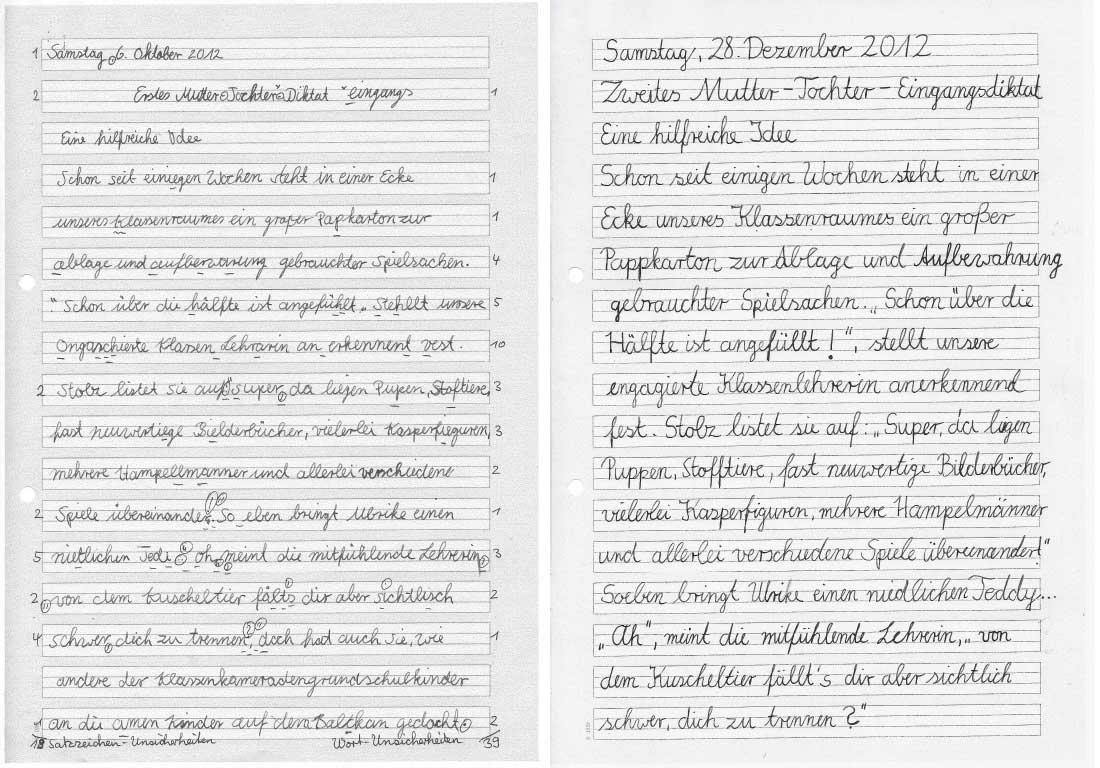 1 Samstag, 6. Oktober 2012
2 Erstes Mutter-Tochter-Diktat eingangs 1
Eine hilfreiche Idee
Schon seit einiegen Wochen steht in einer Ecke 1
unseres klassenraumes ein großer Papkarton zur 1
ablage und aufberwarung gebrauchter Spielsachen. 4
"Schon über die hälfte ist angefühlt„ Stehllt unsere 5
Ongaschierte Klassen Lehrarin an erkennent vest. 10
2 Stolz listet sie auf:"super, da ligen Pupen, Stoftiere, 3
fast neuwertiege Bielderbücher, vielerlei Kasperfieguren, 3
mehrere Hampellmanner und allerlei verschiedene 2
2 Spiele übereinander. So eben bringt Ulrike einen 1
5 nietlichen Tedi. oh, meint die mitfühlende Lehrerin, 3
2 von dem kuscheltier fälts dir aber sichtlisch 2
4 schwer, dich zu trennen, doch had auch sie, wie 1
andere der Klassenkameradengrundschulkinder
1 an die armen kinder auf dem Balckan gedacht. 2
18 Satzzeichen-Unsicherheiten Wort-Unsicherheiten 39
Samstag, 28. Dezember 2012
Zweites Mutter-Tochter-Eingangsdiktat
Eine hilfreiche Idee
Schon seit einigen Wochen steht in einer
Ecke unseres Klassenraumes ein großer
Pappkarton zur Ablage und Aufbewahrung
gebrauchter Spielsachen. „Schon über die
Hälfte ist angefüllt!", stellt unsere
engagierte Klassenlehrerin anerkennend
fest. Stolz listet sie auf: „Super, da liegen
Puppen, Stofftiere, fast neuwertige Bilderbücher,
vielerlei Kasperfiguren, mehrere Hampelmänner
und allerlei verschiedene Spiele übereinander!"
Soeben bringt Ulrike einen niedlichen Teddy...
„Ah", meint die mitfühlende Lehrerin, „von
dem Kuscheltier fällt's dir aber sichtlich
schwer, dich zu trennen?"